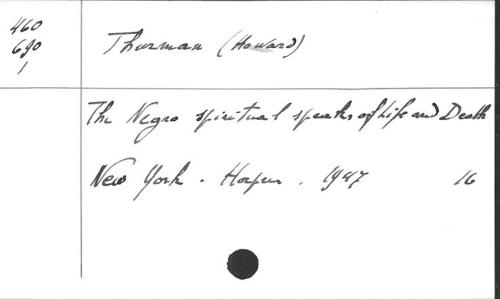 460
690
1
Thurman (Howard)
The Negro spiritual speaks of Life and Death
New York . Harper . 1947 16